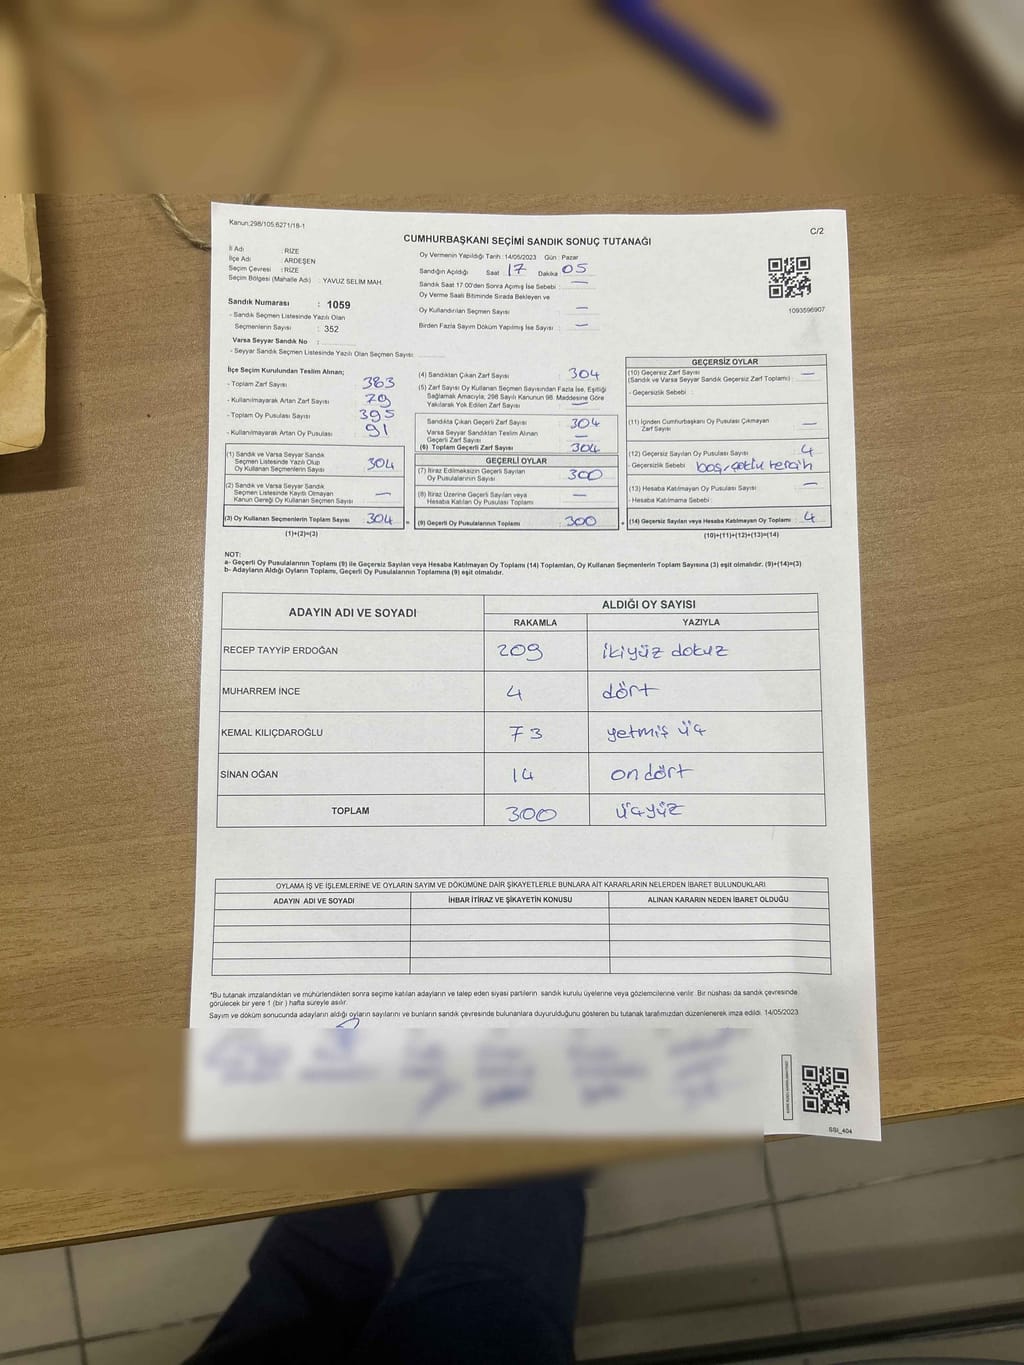 Kanun:298/105;6271/18-1
C/2
CUMHURBAŞKANI SEÇİMİ SANDIK SONUÇ TUTANAĞI
İl Adı : RİZE
İlçe Adı : ARDEŞEN
Seçim Çevresi : RİZE
Seçim Bölgesi (Mahalle Adı) : YAVUZ SELİM MAH.
Sandık Numarası : 1059
- Sandık Seçmen Listesinde Yazılı Olan
Seçmenlerin Sayısı : 352
Varsa Seyyar Sandık No :
- Seyyar Sandık Seçmen Listesinde Yazılı Olan Seçmen Sayısı:
Oy Vermenin Yapıldığı Tarih : 14/05/2023 Gün : Pazar
Sandığın Açıldığı Saat : 17 Dakika 05
Sandık Saat 17:00'den Sonra Açımış İse Sebebi : —
Oy Verme Saati Bitiminde Sırada Bekleyen ve
Oy Kullandırılan Seçmen Sayısı : —
Birden Fazla Sayım Döküm Yapılmış İse Sayısı : —
1093596907
İlçe Seçim Kurulundan Teslim Alınan;
- Toplam Zarf Sayısı : 383
- Kullanılmayarak Artan Zarf Sayısı : 79
- Toplam Oy Pusulası Sayısı : 395
- Kullanılmayarak Artan Oy Pusulası : 91
(1) Sandık ve Varsa Seyyar Sandık
Seçmen Listesinde Yazılı Olup
Oy Kullanan Seçmenlerin Sayısı : 304
(2) Sandık ve Varsa Seyyar Sandık
Seçmen Listesinde Kayıtlı Olmayan
Kanun Gereği Oy Kullanan Seçmen Sayısı : —
(3) Oy Kullanan Seçmenlerin Toplam Sayısı : 304
(1)+(2)=(3)
(4) Sandıktan Çıkan Zarf Sayısı : 304
(5) Zarf Sayısı Oy Kullanan Seçmen Sayısından Fazla İse, Eşitliği
Sağlamak Amacıyla, 298 Sayılı Kanunun 98. Maddesine Göre
Yakılarak Yok Edilen Zarf Sayısı : —
Sandıkta Çıkan Geçerli Zarf Sayısı : 304
Varsa Seyyar Sandıktan Teslim Alınan
Geçerli Zarf Sayısı : —
(6) Toplam Geçerli Zarf Sayısı : 304
GEÇERLİ OYLAR
(7) İtiraz Edilmeksizin Geçerli Sayılan
Oy Pusulasının Sayısı : 300
(8) İtiraz Üzerine Geçerli Sayılan veya
Hesaba Katılan Oy Pusulası Toplamı : —
(9) Geçerli Oy Pusulalarının Toplamı : 300
GEÇERSİZ OYLAR
(10) Geçersiz Zarf Sayısı : —
(Sandık ve Varsa Seyyar Sandık Geçersiz Zarf Toplamı)
- Geçersizlik Sebebi :
(11) İçinden Cumhurbaşkanı Oy Pusulası Çıkmayan
Zarf Sayısı : —
(12) Geçersiz Sayılan Oy Pusulası Sayısı : 4
- Geçersizlik Sebebi : boş, çoklu tercih
(13) Hesaba Katılmayan Oy Pusulası Sayısı : —
- Hesaba Katılmama Sebebi :
(14) Geçersiz Sayılan veya Hesaba Katılmayan Oy Toplamı : 4
(10)+(11)+(12)+(13)=(14)
NOT:
a- Geçerli Oy Pusulalarının Toplamı (9) ile Geçersiz Sayılan veya Hesaba Katılmayan Oy Toplamı (14) Toplamları, Oy Kullanan Seçmenlerin Toplam Sayısına (3) eşit olmalıdır. (9)+(14)=(3)
b- Adayların Aldığı Oyların Toplamı, Geçerli Oy Pusulalarının Toplamına (9) eşit olmalıdır.
ADAYIN ADI VE SOYADI
ALDIĞI OY SAYISI
RAKAMLA YAZIYLA
RECEP TAYYİP ERDOĞAN 209 ikiyüz dokuz
MUHARREM İNCE 4 dört
KEMAL KILIÇDAROĞLU 73 yetmiş üç
SİNAN OĞAN 14 on dört
TOPLAM 300 üçyüz
OYLAMA İŞ VE İŞLEMLERİNE VE OYLARIN SAYIM VE DÖKÜMÜNE DAİR ŞİKAYETLERLE BUNLARA AİT KARARLARIN NELERDEN İBARET BULUNDUKLARI
ADAYIN ADI VE SOYADI İHBAR İTİRAZ VE ŞİKAYETİN KONUSU ALINAN KARARIN NEDEN İBARET OLDUĞU
*Bu tutanak imzalandıktan ve mühürlendikten sonra seçime katılan adayların ve talep eden siyasi partilerin sandık kurulu üyelerine veya gözlemcilerine verilir. Bir nüshası da sandık çevresinde
görülecek bir yere 1 (bir ) hafta süreyle asılır.
Sayım ve döküm sonucunda adayların aldığı oyların sayılarını ve bunların sandık çevresinde bulunanlara duyurulduğunu gösteren bu tutanak tarafımızdan düzenlenerek imza edildi. 14/05/2023
SSI_404